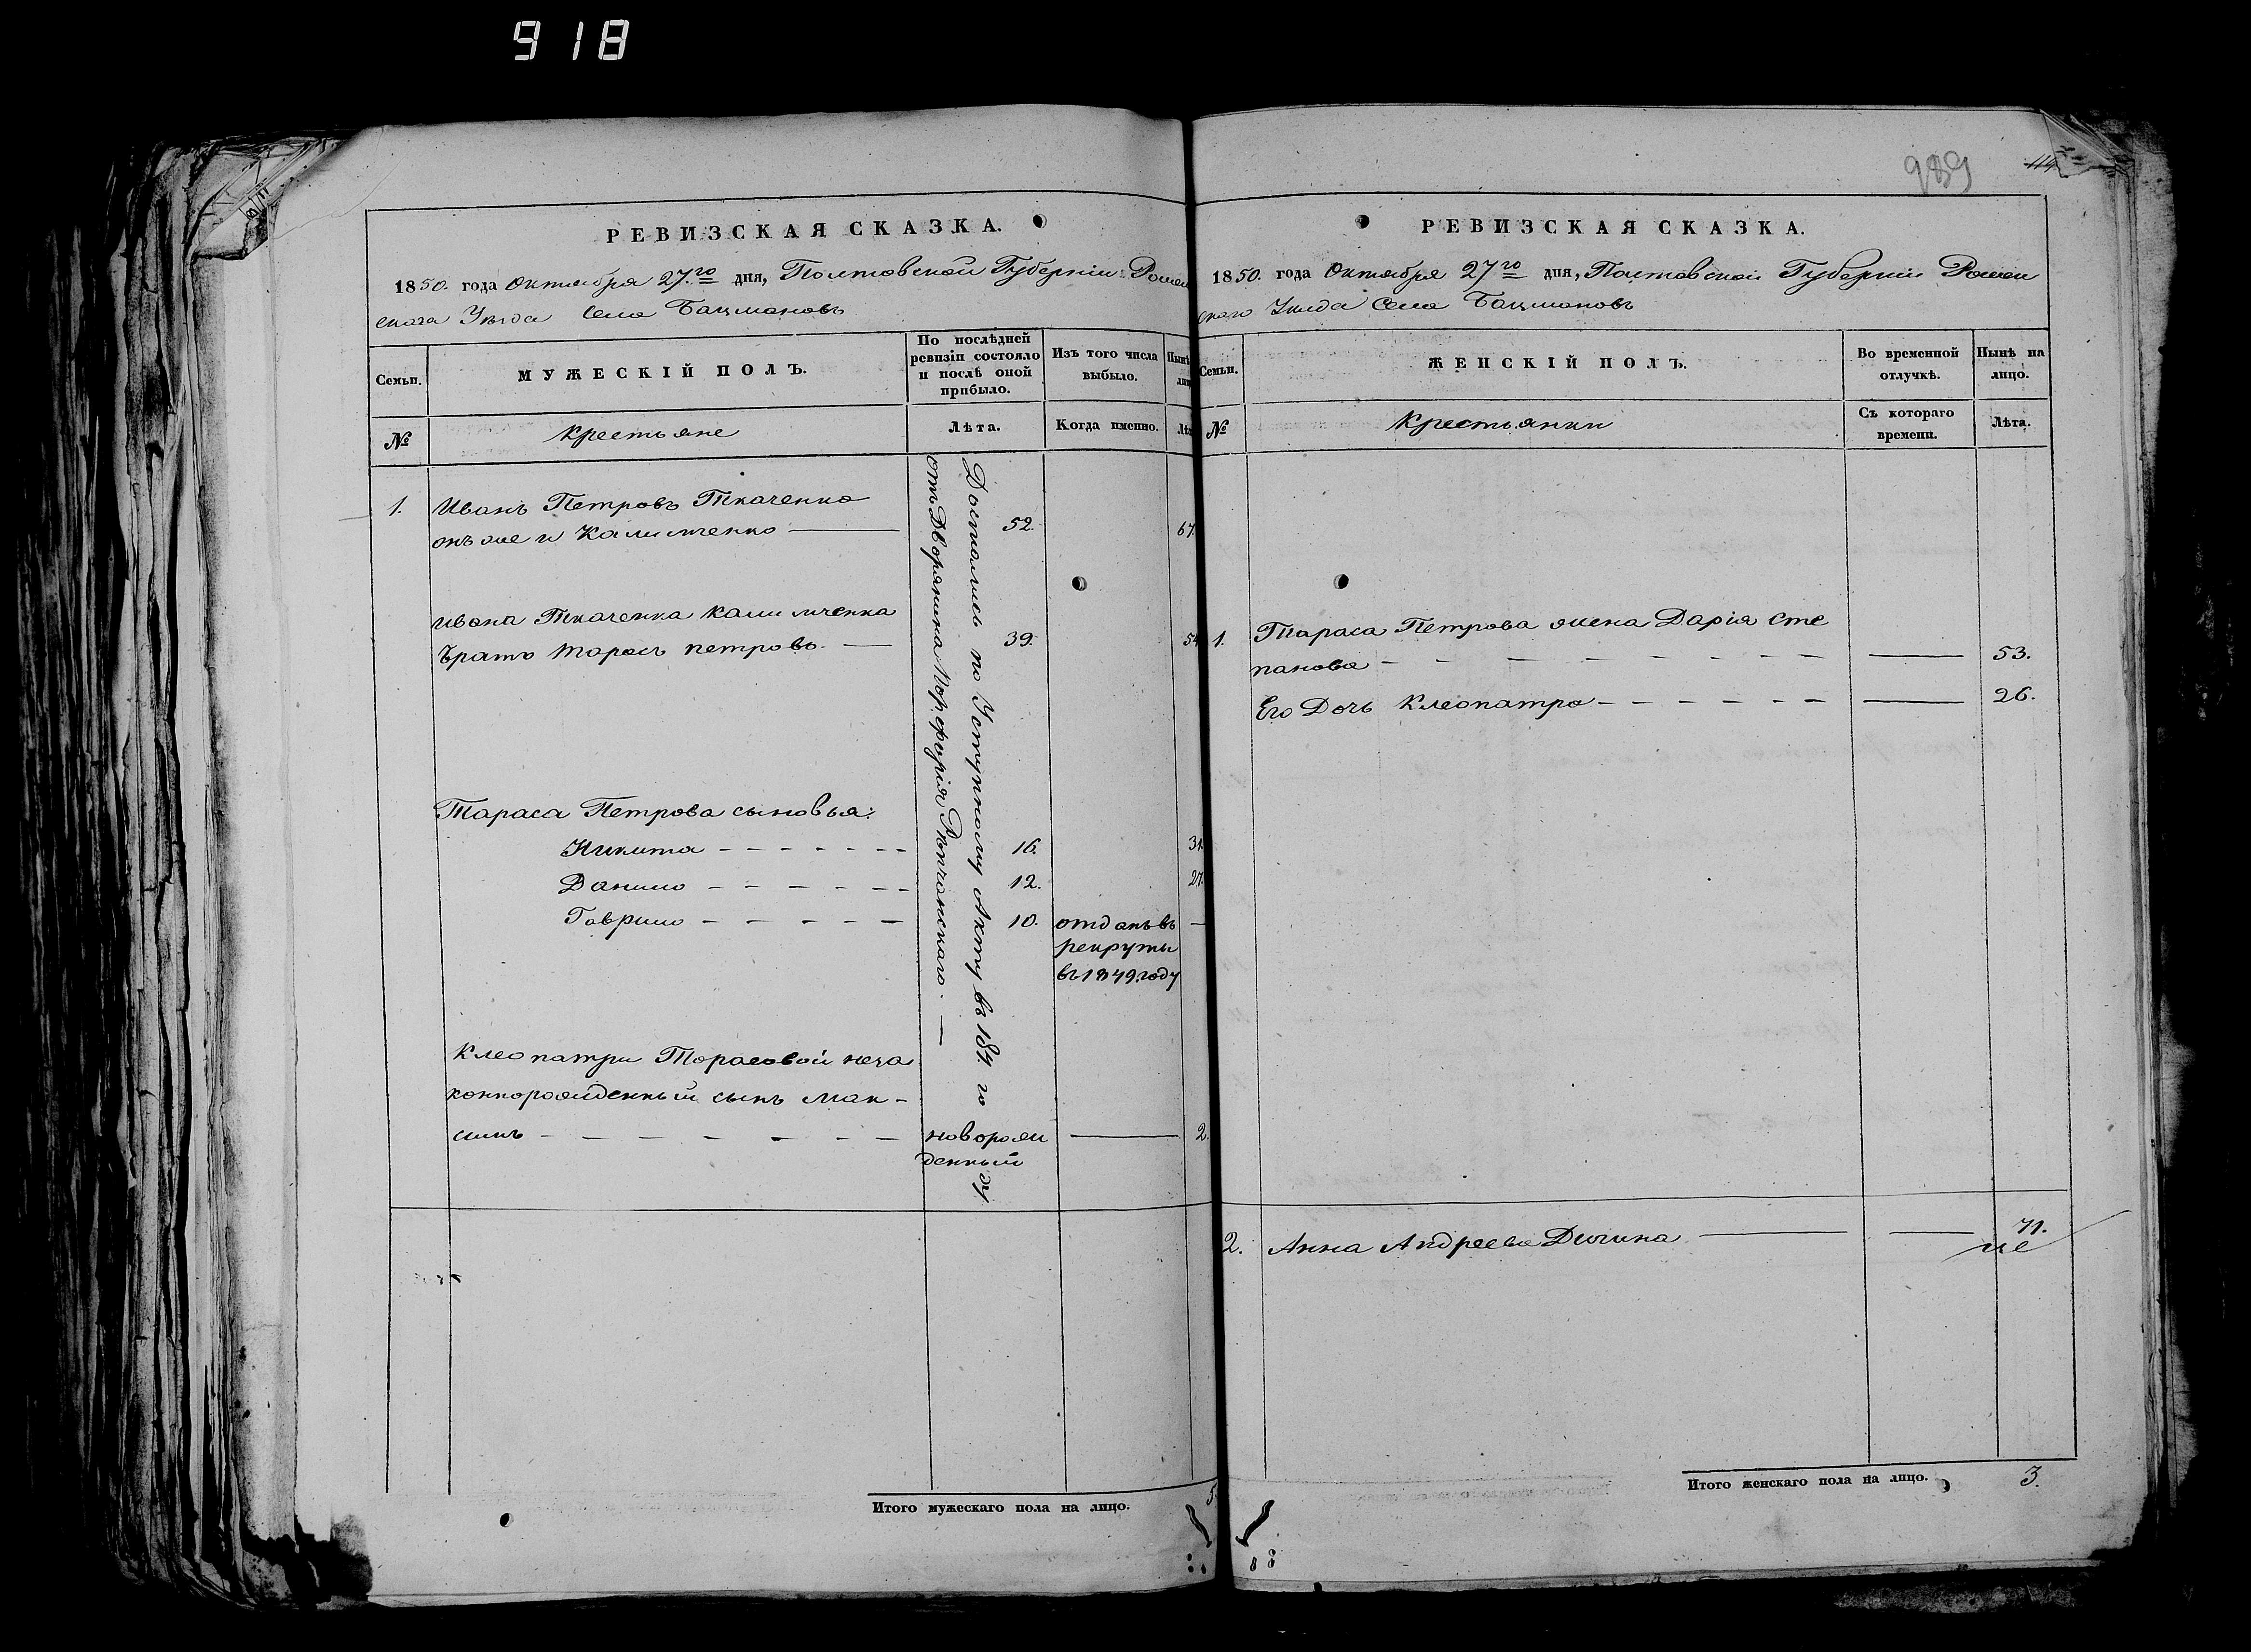 918
РЕВИЗСКАЯ СКАЗКА.
1850. года Октября 27.го дня, Полтавской Губерніи Ромен
скаго Уѣзда села Бацмановъ
Семьи.
МУЖЕСКІЙ ПОЛЪ.
По послѣдней
ревизіи состояло
и послѣ оной
прибыло.
Изъ того числа
выбыло.
Нынѣ
лиц
№
Крестьяне
Лѣта.
Когда именно.
Лѣт
1.
Иванъ Петровъ Ткаченко
онъ же и Калитченко
52.
67.
Ивана Ткаченка Калитченка
братъ Тарасъ Петровъ.
39.
54
Тараса Петрова сыновья:
Никита
16.
31.
Данило
12.
27.
Гаврило
10.
отданъ въ
рекруты
въ 1849. году
Клеопатри Тарасовой неза
коннорожденный сынъ Мак-
симъ
новорож
денный
2.
Достались по Уступному Акту въ 184. го ду
отъ Дворянина Порфирія Рѣпчанскаго.
Итого мужескаго пола на лицо.
5
989
114
РЕВИЗСКАЯ СКАЗКА.
1850. года Октября 27го дня, Полтавской Губерніи Ромен
скаго Уѣзда Села Бацмановъ
Семьи.
ЖЕНСКІЙ ПОЛЪ.
Во временной
отлучкѣ.
Нынѣ на
лицо.
№
Крестьянки
Съ котораго
времени.
Лѣта.
1.
Тараса Петрова жена Дарія Сте
панова
53.
Его Дочь Клеопатра
26.
2.
Анна Андреева Дигина
71.
Итого женскаго пола на лицо.
3.